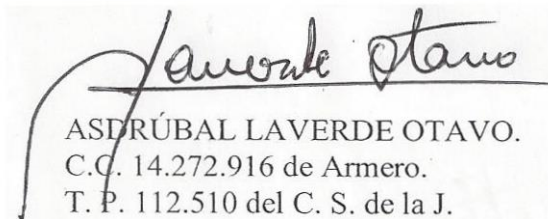 Laverde Otavo
ASDRÚBAL LAVERDE OTAVO.
C.C. 14.272.916 de Armero.
T. P. 112.510 del C. S. de la J.